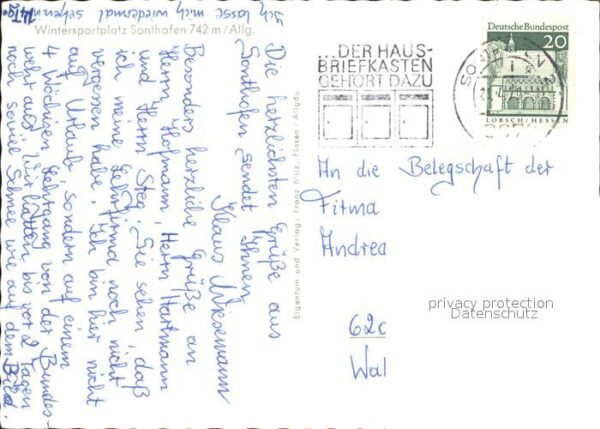 Ich lasse mich wiedermal sehen
Wintersportplatz Sonthofen 742 m / Allg.
Die herzlichsten Grüße aus
Sonthofen sendet Ihnen
Klaus Wiesemann
Besonders herzliche Grüße an
Herrn Hofmann, Herrn Hartmann
und Herrn Steg. Sie sehen, daß
ich meine Lehrfirma noch nicht
vergessen habe. Ich bin hier nicht
auf Urlaub sondern auf einem
4 Wöchigen Lehrgang von der Bundes-
wehr aus. Wir hatten bis vor 2 Tagen
noch soviel Schnee wie auf dem Bild.
Eigentum und Verlag, Franz Milz, Füssen / Allgäu
...DER HAUS-
BRIEFKASTEN
GEHÖRT DAZU
Deutsche Bundespost
20
LORSCH / HESSEN
An die Belegschaft der
Firma
Andrea
privacy protection
Datenschutz
62c
Wal